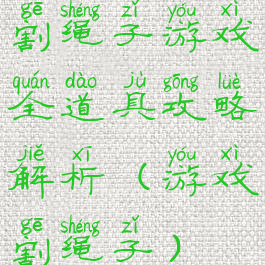 gē shéng zǐ yóu xì
割绳子游戏
quán dào jù gōng lüè
全道具攻略
jiě xī yóu xì
解析（游戏
gē shéng zǐ
割绳子）